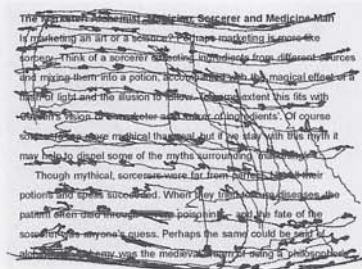 The Marketer: Alchemist, Magician, Sorcerer and Medicine Man
Is marketing an art or a science? Perhaps marketing is more like
sorcery. Think of a sorcerer selecting ingredients from different sources
and mixing them into a potion, accompanied with the magical effect of a
flash of light and the illusion to follow. To some extent this fits with
vision of marketer and ingredients'. Of course
sorcerers are more mythical than real, but if we stay with this myth it
may help to dispel some of the myths surrounding 'marketing'.
Though mythical, sorcerers were far from perfect. Not all their
potions and spells succeeded. When they tried to cure diseases, the
patient often died through poisoning, and the fate of the
sorcerer was anyone's guess. Perhaps the same could be said of
was the medieval of using a philosopher's